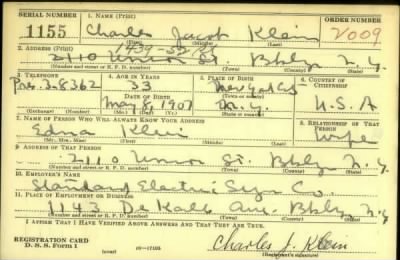 SERIAL NUMBER 1. NAME (Print) ORDER NUMBER
1155 Charles Jacob Klein V009
(First) (Middle) (Last)
2. ADDRESS (Print)
2110 Union St. Bklyn N.Y.
(Number and street or R. F. D. number) (Town) (County) (State)
3. TELEPHONE 4. AGE IN YEARS 5. PLACE OF BIRTH 6. COUNTRY OF CITIZENSHIP
Pre. 2-8362 33 New York City
DATE OF BIRTH (Town or county)
May 8, 1907 N.Y. U.S.A
(Exchange) (Number) (Mo.) (Day) (Yr.) (State or country)
7. NAME OF PERSON WHO WILL ALWAYS KNOW YOUR ADDRESS 8. RELATIONSHIP OF THAT PERSON
Edna Klein Wife
(Mr., Mrs., Miss) (First) (Middle) (Last)
9. ADDRESS OF THAT PERSON
2110 Union St. Bklyn N.Y.
(Number and street or R. F. D. number) (Town) (County) (State)
10. EMPLOYER'S NAME
Standard Electric Sign Co.
11. PLACE OF EMPLOYMENT OR BUSINESS
1143 DeKalb Ave Bklyn N.Y.
(Number and street or R. F. D. number) (Town) (County) (State)
I AFFIRM THAT I HAVE VERIFIED ABOVE ANSWERS AND THAT THEY ARE TRUE.
REGISTRATION CARD
D. S. S. Form 1 Charles J. Klein
(Registrant's signature)